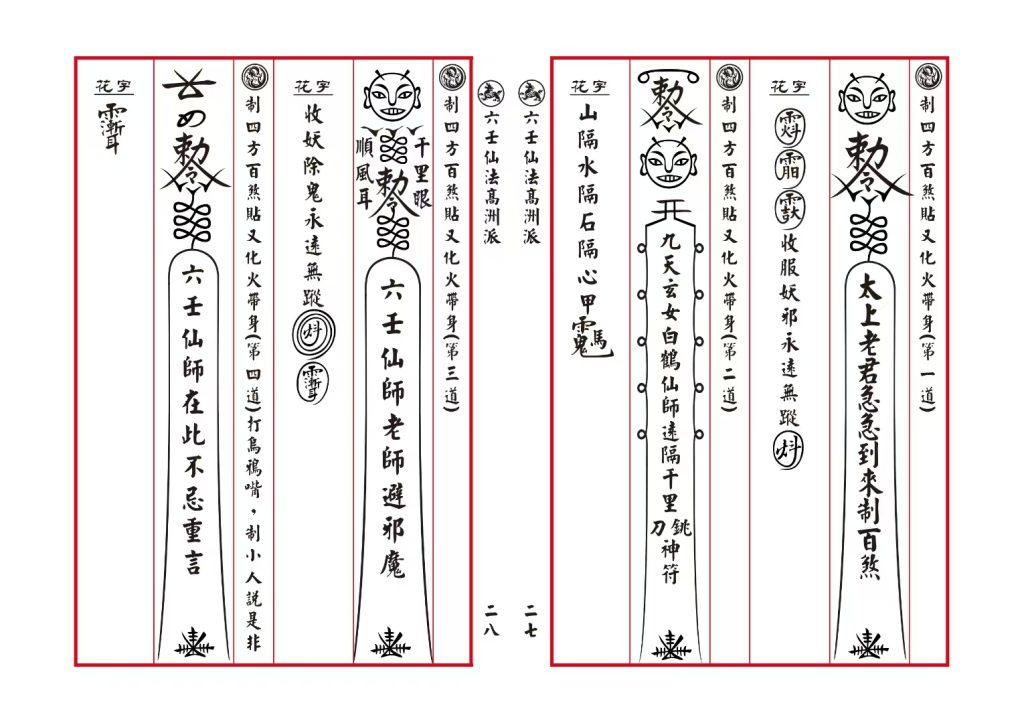 制四方百煞貼又化火帶身(第一道)
勅令
太上老君急急到來制百煞
花字
收服妖邪永遠無蹤
制四方百煞貼又化火帶身(第二道)
勅令
九天玄女白鶴仙師遠隔千里
銚刀
神符
花字
山隔水隔石隔心甲
六壬仙法高洲派
二七
六壬仙法高洲派
二八
制四方百煞貼又化火帶身(第三道)
千里眼
勅令
順風耳
六壬仙師老師避邪魔
花字
收妖除鬼永遠無蹤
制四方百煞貼又化火帶身(第四道)打烏鴉嘴，制小人說是非
勅令
六壬仙師在此不忌重言
花字